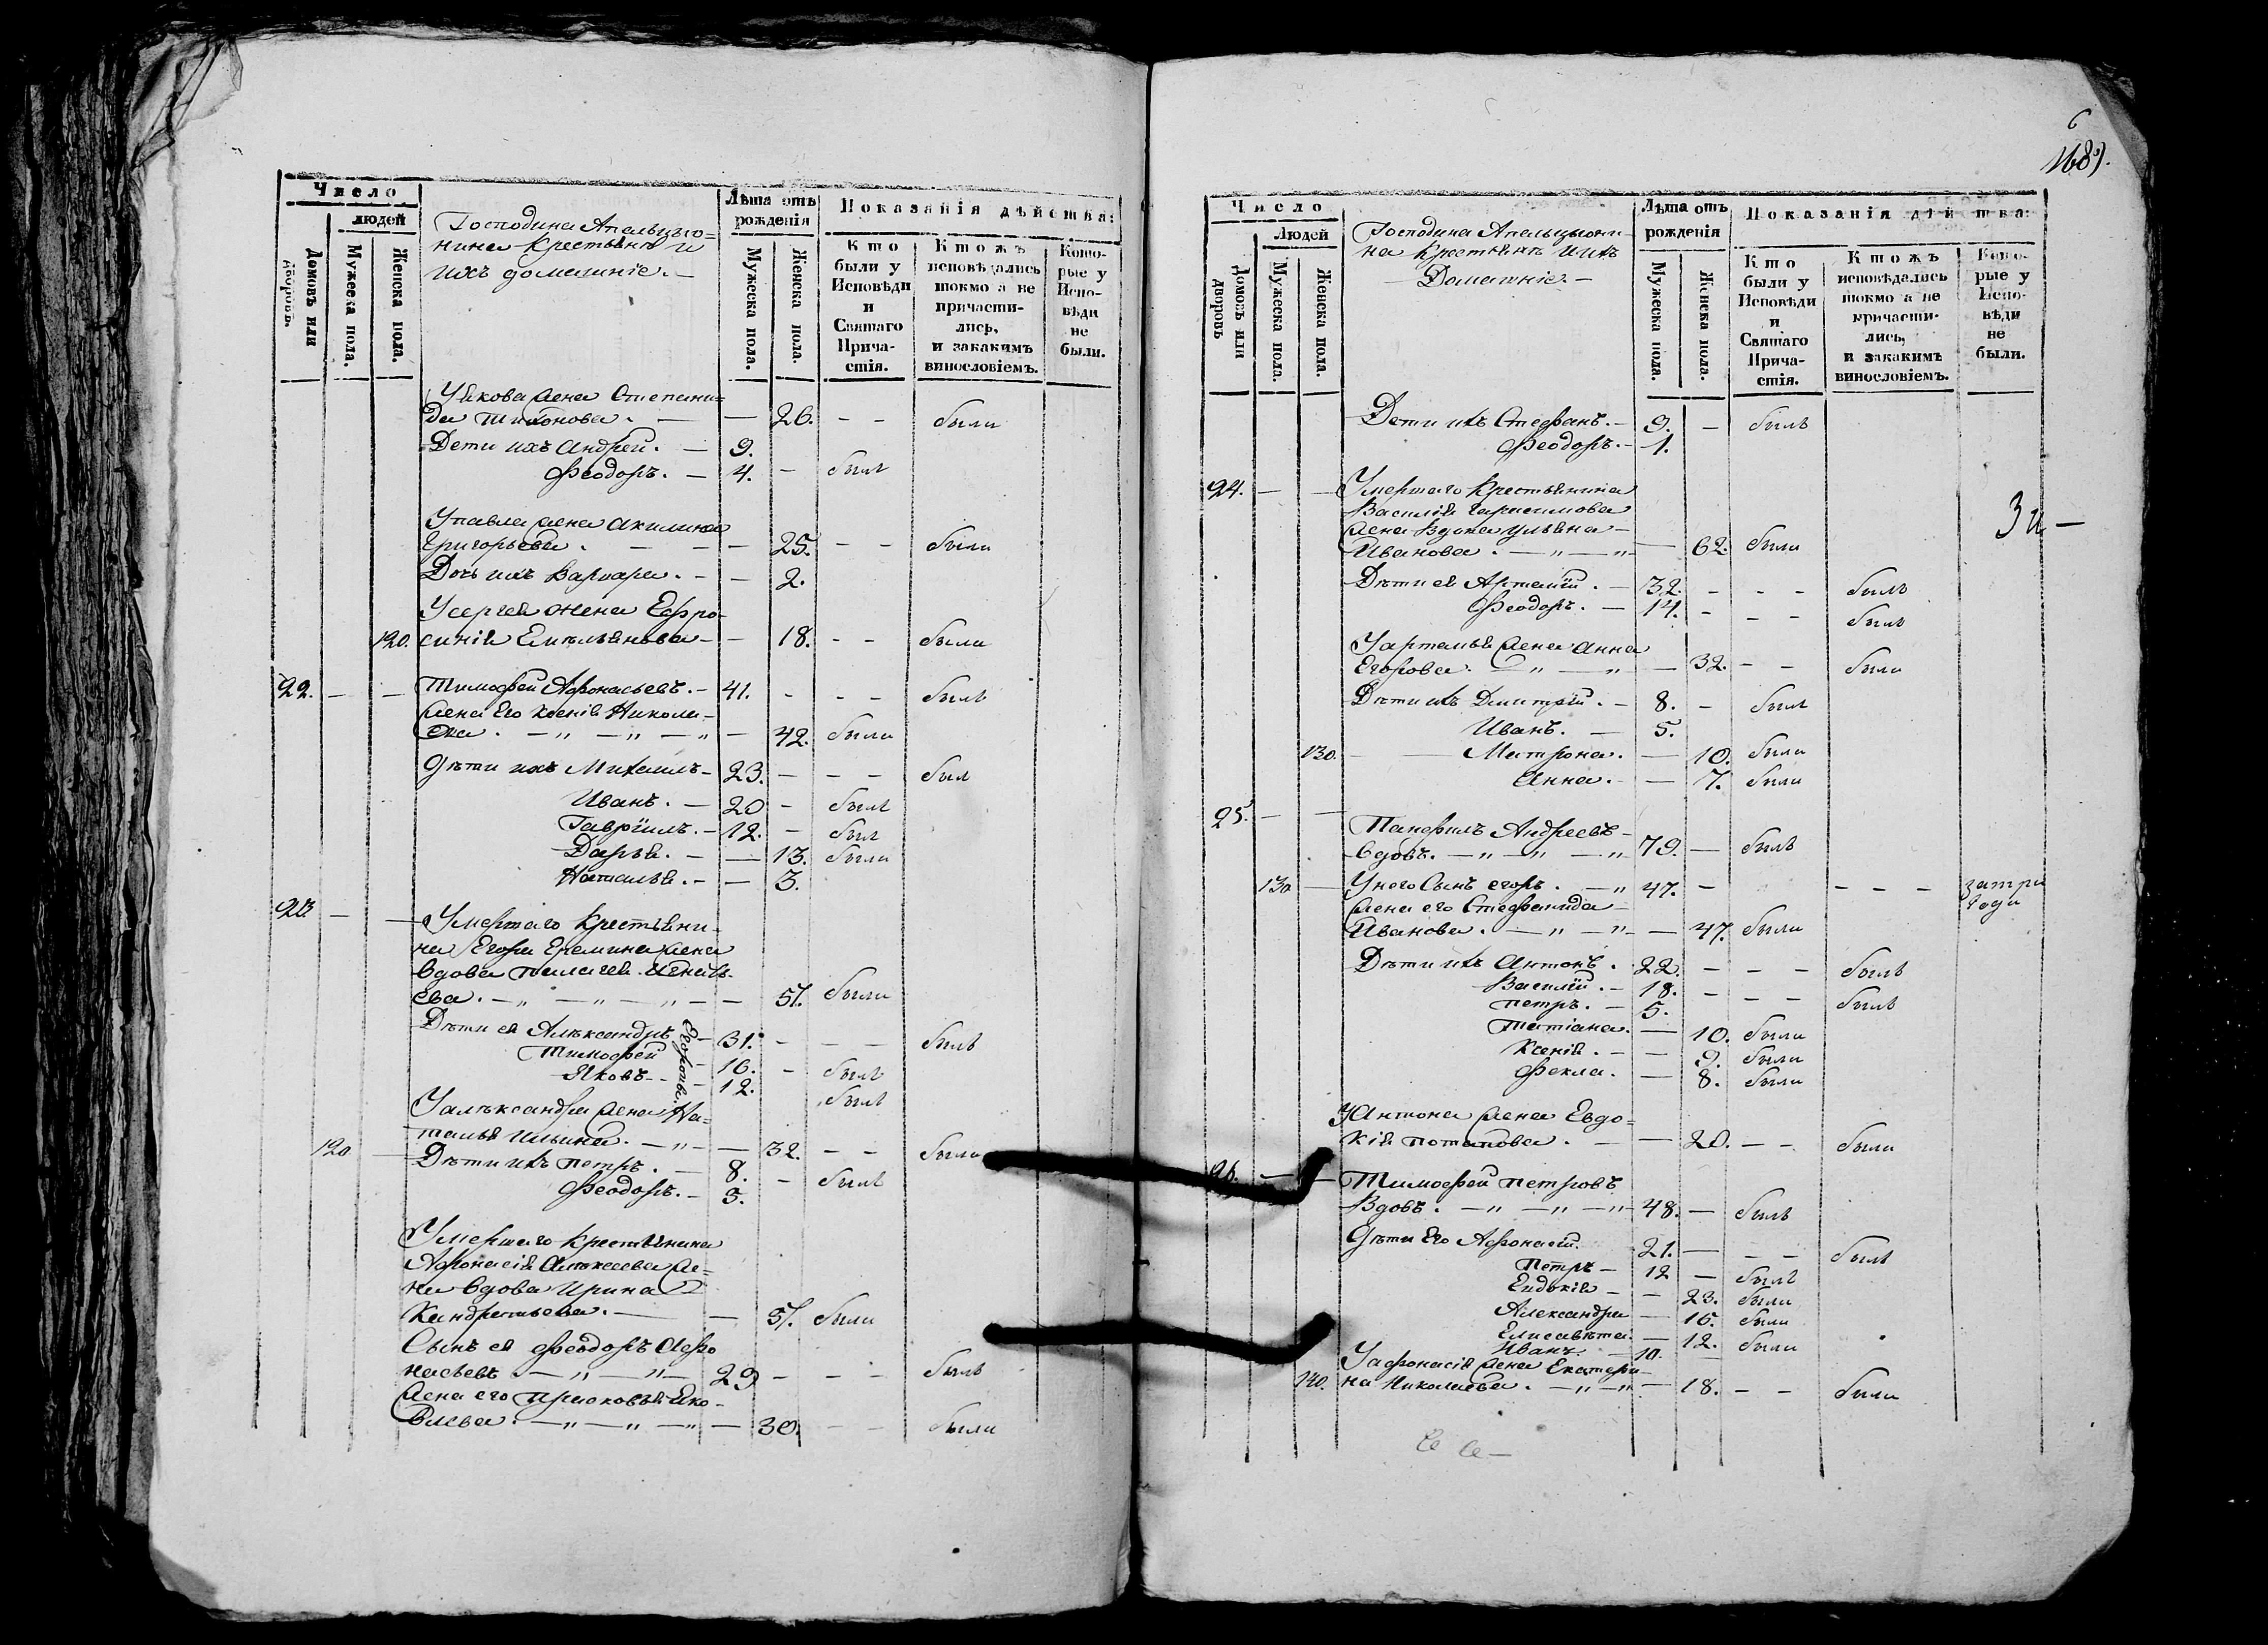 Число
людей
Домовъ или дворовъ.
Мужеска пола.
Женска пола.
Господина Апельцыо=
нина Крестьянѣ и
ихъ домашніе. —
Лѣта отъ рожденія
Мужеска пола.
Женска пола.
Показанія дѣйства:
Кто были у Исповѣди и Святаго Прича- стія.
Ктожъ исповѣдались токмо а не причасти- лись, и закакимъ винословіемъ.
Кото- рые у Испо- вѣди не были.
Уякова жена Степани=
да Тихонова. — — 26. - - были
Дети ихъ Андрей. — 9.
Феодоръ. — 4. — былъ
Упавла жена Акилина
Григорьева. — — — 25. - - были
Дочь ихъ Варвара. - — 2.
Усергея жена Ефро-
120. синія Емельянова — — 18. - - были
22. — — Тимофей Афонасьевъ. — 41. - - - былъ
жена Его Ксенія Никола-
ева. — „ — „ — „ — 42. были
Дѣти ихъ Михаилъ — 23. — - - был
Иванъ. — 20 - былъ
Гавріилъ. - 12. - был
Дарья. - — 13. были
Наталья. - — 3.
23. — — Умершаго Крестьяни-
на Егора Еремина жена
вдова Пелагея Игнать-
ева. — „ — „ — „ — — 57. были
Дѣти ея Алѣксандръ — 31. - - - былъ
Тимофей — 16. - былъ
Яковъ — 12. былъ
Егоровы.
Уалѣксандра жена На-
120 талья Ильина. — „ — 32. - - были
Дѣти ихъ Петръ. — 8. - былъ
Феодоръ. — 3.
Умершаго Крестьянина
Афонасія Алѣксеева же-
на вдова Ирина
Кандратьева. — — 57. были
Сынъ ея Феодоръ Афо
насьевъ. — „ — „ — 29 - - - былъ
жена его Прасковья Яко-
влева. — „ — „ — „ — 30. - - были
6
168).
Число
Людей
Домовъ или дворовъ
Мужеска пола.
Женска пола.
Господина Апельцыони-
на Крестьянѣ и ихъ
Домашніе. —
Лѣта отъ рожденія
Мужеска пола.
Женска пола.
Показанія дѣй тва:
Кто были у Исповѣди и Святаго Прича- стія.
Ктожъ исповѣдались токмо а не причасти- лись, и закакимъ винословіемъ.
Кото- рые у Испо- вѣди не были.
Дети ихъ Стефанъ. — 9. — былъ
Феодоръ. — 1.
24. — — Умершаго Крестьянина
Василія Герасимова
жена Вдова Ульяна —
Иванова. — „ — „ — 62. были
Дѣти ея Артемій. — 32. - - - былъ
Феодоръ. — 14. - - - былъ
Уартемья жена Анна
Егорова. — „ — „ — 32. - - были
Дѣти ихъ Димитрій. — 8. - былъ
Иванъ. — 5.
130. — Матрона. — 10. были
Анна. — — 7. были
25. — — Панфилъ Андреевъ —
вдовъ. — „ — „ — „ 79. — былъ
130 — Унего Сынъ Егоръ. — „ 47. - - - - затри
года
жена его Стефанида
Иванова. — „ — „ — 47. были
Дѣти ихъ Антонъ. 22. - - - былъ
Василій. — 18. - - - былъ
Петръ. — 5.
Татіана. — 10. были
Ксенія. — — 9. были
Фекла. — 8. были
Уантона жена Евдо=
кія Потапова. — — 20. - - были
26. — — Тимофей Петровъ
Вдовъ. — „ — „ — „ 48. — былъ
Дѣти Его Афонасій. 21. — - - былъ
Петръ — 12 — былъ
Евдокія — — 23. были
Александра — 16. были
Елисавѣта. — 12. были
Иванъ. — 10. —
Уафонасія жена Екатери-
140. на Николаева. — „ — „ — 18. - - были